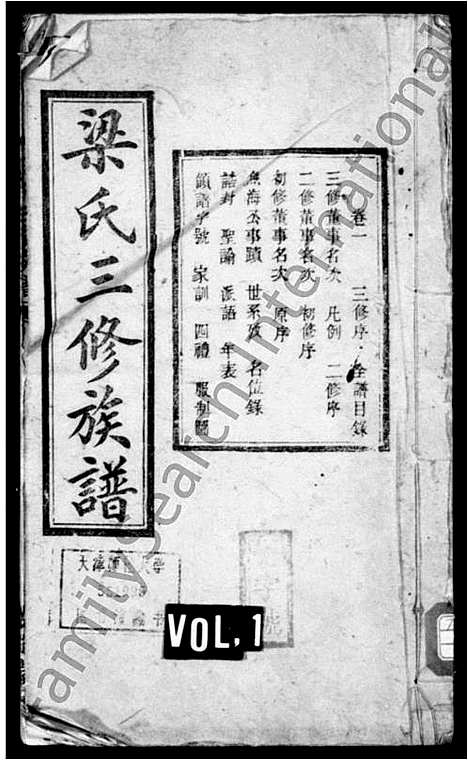 梁氏三修族譜
卷一 三修序 全譜目錄
三修董事名次 凡例 二修序
二修董事名次 初修序
初修董事名次 原序
魚海公事蹟 世系攷 名位錄
誥封 聖諭 派語 年表
領譜字號 家訓 四禮 服制圖
VOL, 1
FamilySearch International